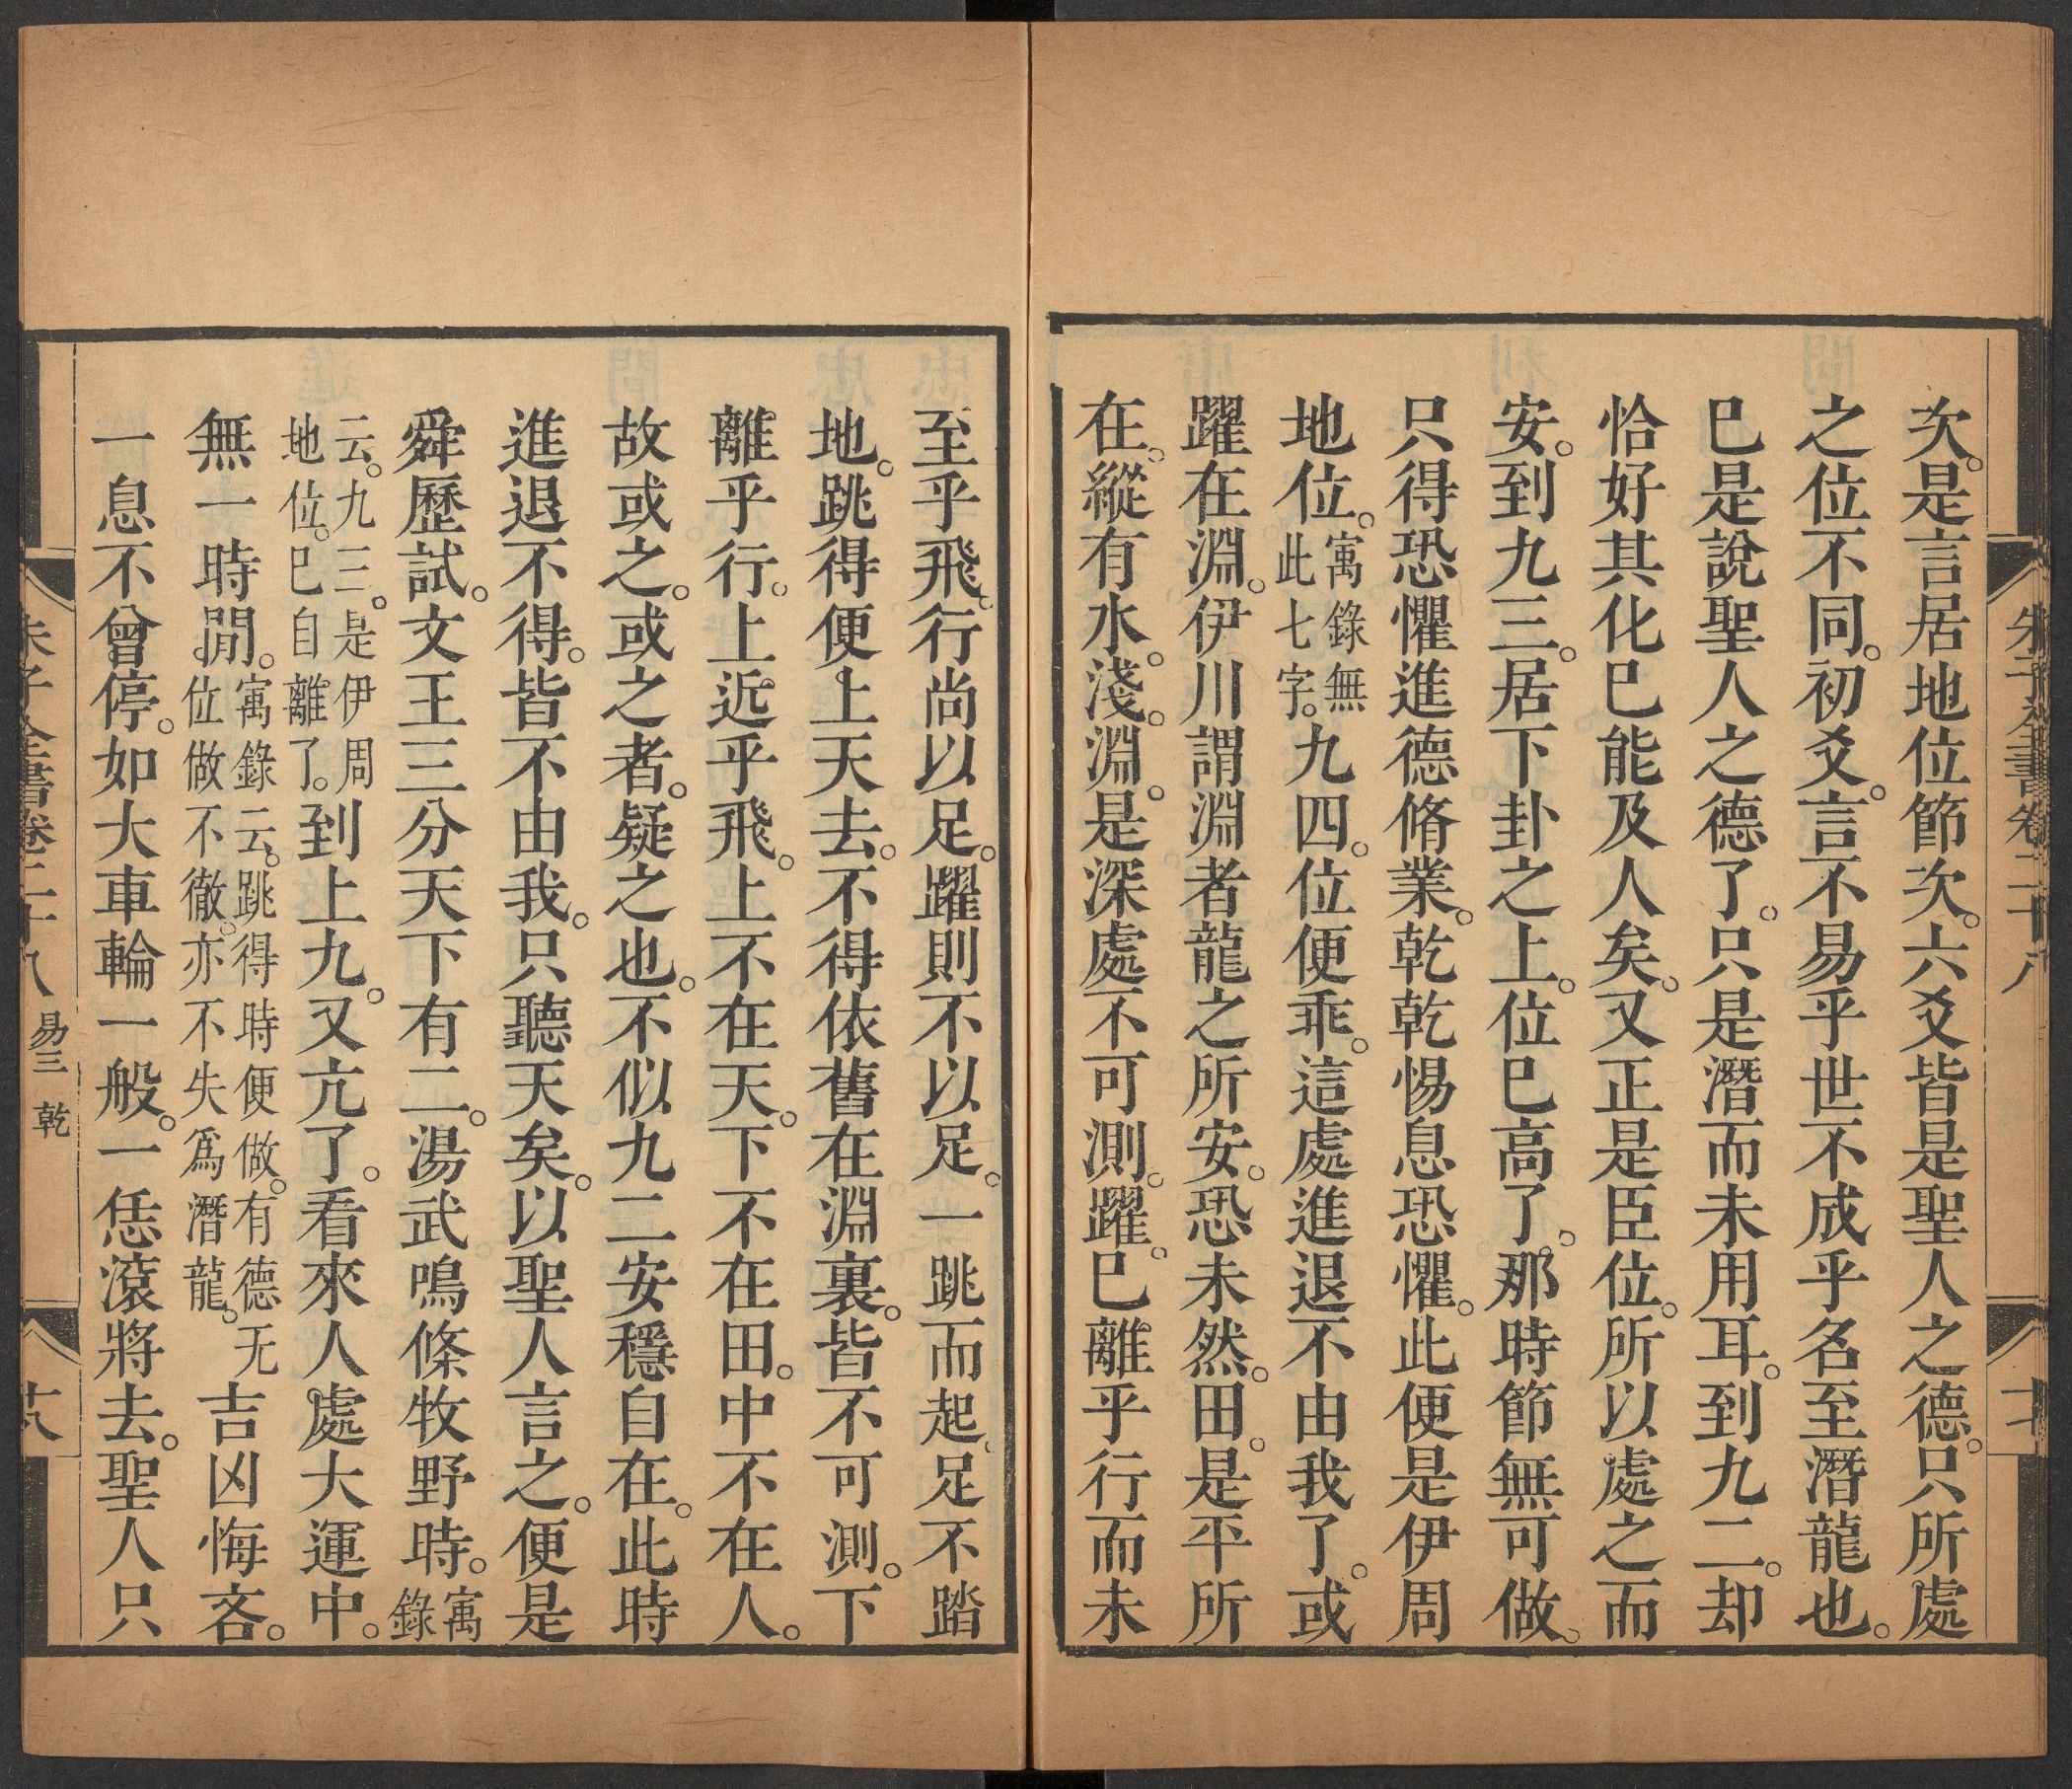 次。是言居地位節次。六爻皆是聖人之德。只所處
之位不同。初爻。言不易乎世不成乎名至潛龍也。
巳是說聖人之德了。只是潛而未用耳。到九二。却
恰好其化巳能及人矣。又正是臣位。所以處之而
安。到九三。居下卦之上。位巳高了。那時節無可做。
只得恐懼進德脩業。乾乾惕息恐懼。此便是伊周
地位。寓錄無此七字。九四。位便乖。這處進退不由我了。或
躍在淵。伊川謂淵者龍之所安。恐未然。田。是平所
在。縱有水。淺。淵。是深處不可測。躍。巳離乎行而未
至乎飛。行尚以足。躍則不以足。一跳而起。足不踏
地。跳得便上天去。不得依舊在淵裏。皆不可測。下
離乎行。上近乎飛。上不在天。下不在田。中不在人。
故或之。或之者。疑之也。不似九二安穩自在。此時
進退不得。皆不由我。只聽天矣。以聖人言之。便是
舜歷試。文王三分天下有二。湯武鳴條牧野時。寓錄
云。九三。是伊周地位。巳自離了。到上九。又亢了。看來人處大運中。
無一時閒。寓錄云。跳得時便做。有德无位做不徹。亦不失爲潛龍。吉凶悔吝。
一息不曾停。如大車輪一般。一恁滾將去。聖人只
朱子全書卷二十八
易三 乾
十八